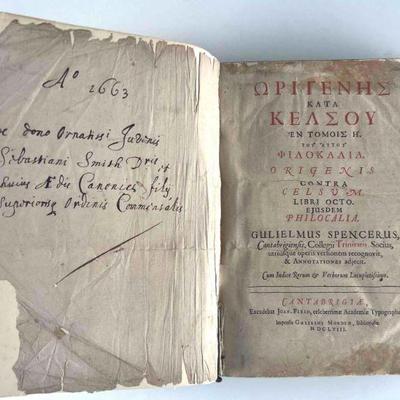 Aº 1663
e dono Ornatissi Juvenis
Sebastiani Smith Dris et
hujus Ædis Canonici filij
Superioris Ordinis Commensalis
ΩΡΙΓΕΝΗΣ
ΚΑΤΑ
ΚΕΛΣΟΥ
ἘΝ ΤΟΜΟΙΣ Η.
ΤΟΥ ΑΥΤΟΥ
ΦΙΛΟΚΑΛΙΑ.
ORIGENIS
CONTRA
CELSUM
LIBRI OCTO.
EJUSDEM
PHILOCALIA.
GULIELMUS SPENCERUS,
Cantabrigiensis, Collegii Trinitatis Socius,
utriusque operis versionem recognovit,
& ANNOTATIONES adjecit.
Cum Indice Rerum & Verborum Locupletissimo.
CANTABRIGIÆ,
Excudebat JOAN. FIELD, celeberrimæ Academiæ Typographus.
Impensis GULIELMI MORDEN, Bibliopolæ.
MDCLVIII.